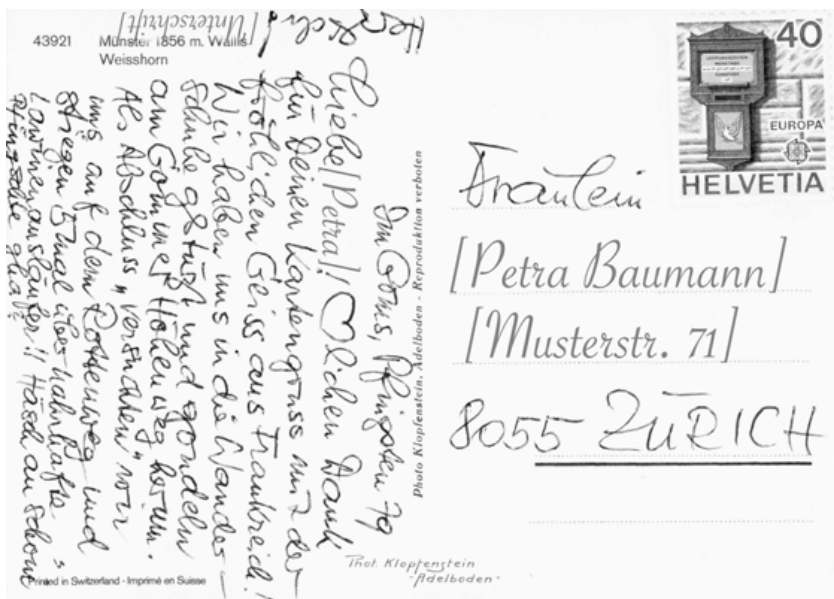 43921 Münster 1856 m. Wallis
Weisshorn
Im Goms, Pfingsten 79
Liebe [Petra]! ♡lichen Dank
für Deinen Kartengruss mit der
fröhlichen Geiss aus Frankreich!
Wir haben uns in die Wander-
schuhe gestürzt und gondeln
am Gommer Höhenweg herum.
Als Abschluss "verirrten" wir
uns auf dem Rottenweg und
stiegen 5 mal über nahrhafte
Lawinenausläufer!! Häsch au schöni
Pfingschte gha?
Herz
[Unterschrift]
Printed in Switzerland - Imprimé en Suisse
Photo Klopfenstein, Adelboden - Reproduktion verboten
Phot. Klopfenstein
- Adelboden -
40
EUROPA
HELVETIA
Fräulein
[Petra Baumann]
[Musterstr. 71]
8055 ZÜRICH